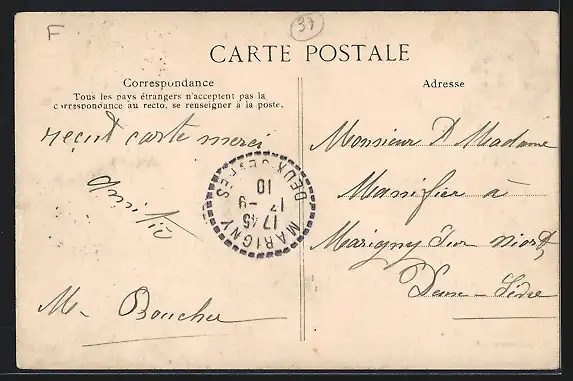 F
37
CARTE POSTALE
Correspondance
Tous les pays étrangers n'acceptent pas la
correspondance au recto, se renseigner à la poste.
Adresse
reçut carte merci
Amitié
M. Boucher
Monsieur & Madame
à
Marigny sur Niort
Deux-Sèvre
MARIGNY
DEUX-SÈVRES
1745
17-9
10